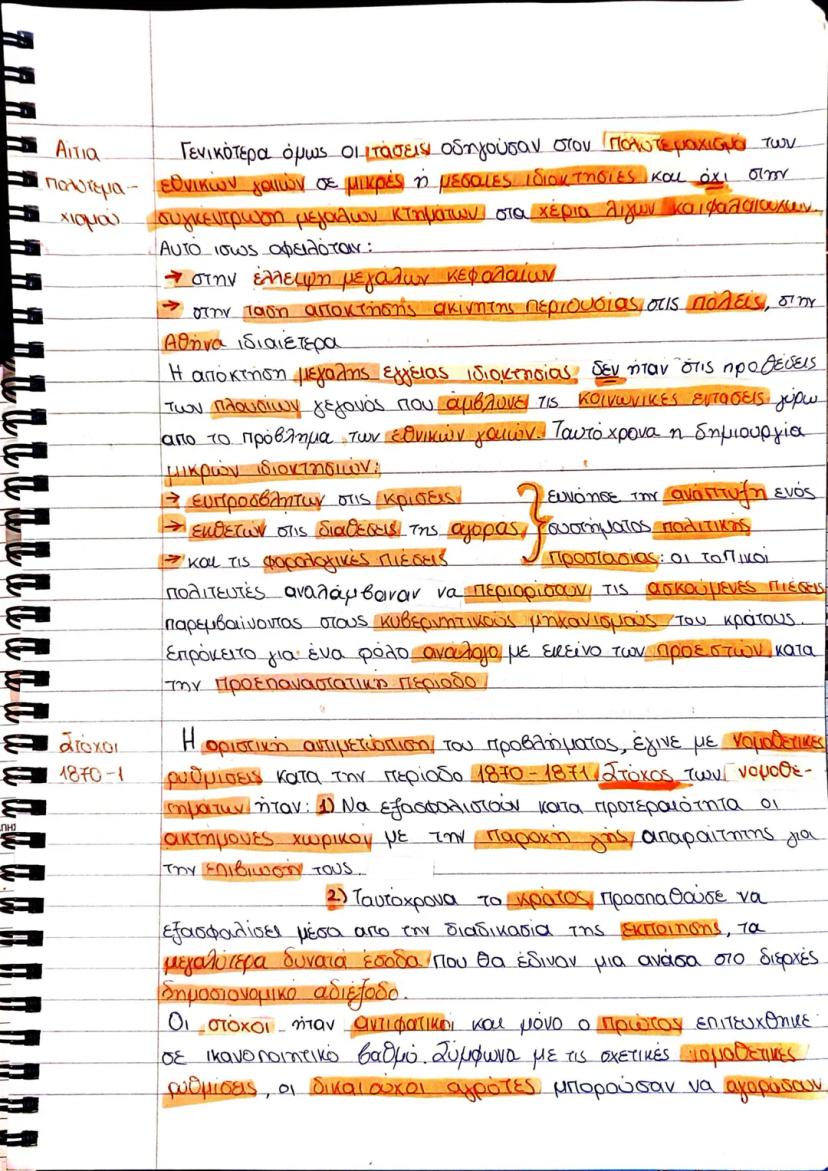 Αιτια
πολυτεμα-
χισμού
Γενικότερα όμως οι τάσεις οδηγούσαν στον πολυτεμαχισμό των
εθνικών γαιών σε μικρές ή μεσαίες ιδιοκτησίες και όχι στην
συγκέντρωση μεγάλων κτημάτων στα χέρια λίγων κεφαλαιούχων.
Αυτό ισως οφειλόταν:
→ στην έλλειψη μεγάλων κεφαλαίων
→ στην ταση αποκτησης ακίνητης περιουσίας στις πόλεις, στην
Αθήνα ιδιαίτερα
Η απόκτηση μεγάλης έγγειας ιδιοκτησίας δεν ήταν στις προθέσεις
των πλουσίων γεγονός που άμβλυνε τις κοινωνικές εντάσεις γύρω
απο το πρόβλημα των εθνικών γαιών. Ταυτόχρονα η δημιουργία
μικρών ιδιοκτησιών:
→ ευπροσβλητων στις κρίσεις
→ εκθετων στις διαθέσεις της αγορας
→ και τις φορολογικές πιέσεις
ευνόησε την ανάπτυξη ενός
συστήματος πολιτικής
προστασιας: οι τοπικοί
πολιτευτές αναλάμβαναν να περιορίσουν τις ασκούμενες πιέσεις
παρεμβαίνοντας στους κυβερνητικούς μηχανισμούς του κράτους.
Επρόκειτο για ένα ρόλο ανάλογο με εκείνο των προεστών κατα
την προεπαναστατική περίοδο.
Στόχοι
1870-1
Η οριστική αντιμετώπιση του προβλήματος, έγινε με νομοθετικές
ρυθμίσεις κατα την περίοδο 1870-1871. Στόχος των νομοθε-
τημάτων ήταν: 1) Να εξασφαλιστούν κατα προτεραιότητα οι
ακτήμονες χωρικοί με την παροχή γης απαραίτητης για
την επιβίωσή τους.
2) Ταυτόχρονα το κράτος προσπαθούσε να
εξασφαλίσει μέσα απο την διαδικασία της εκποίησης, τα
μεγαλύτερα δυνατά έσοδα που θα έδιναν μια ανάσα στο διαρκές
δημοσιονομικό αδιέξοδο.
Οι στόχοι ήταν αντιφατικοί και μόνο ο πρώτος επιτευχθηκε
σε ικανοποιητικό βαθμό. Σύμφωνα με τις σχετικές νομοθετικές
ρυθμίσεις, οι δικαιούχοι αγρότες μπορούσαν να αγοράσουν